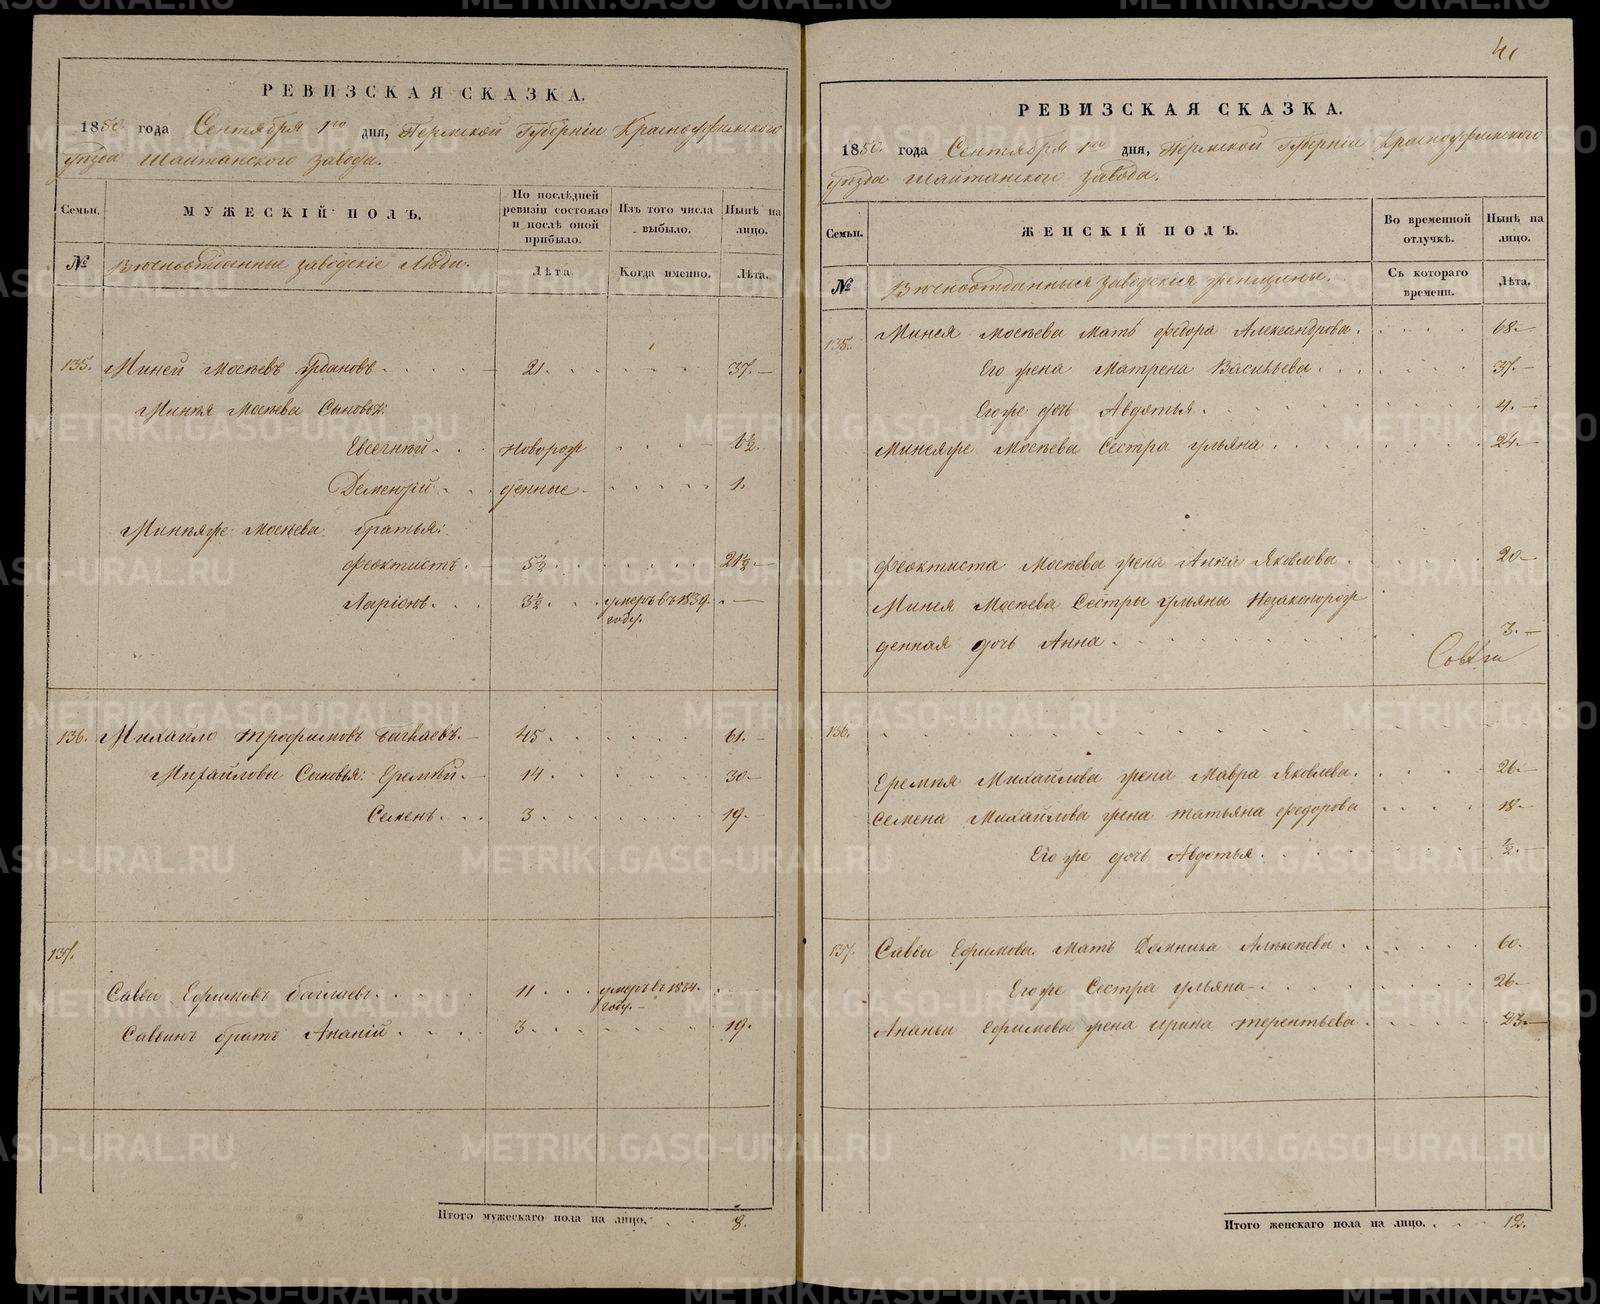 РЕВИЗСКАЯ СКАЗКА.
1850 года Сентября 1го дня, Пермской Губерніи Красноуфимского
уѣзда Шайтанского завода.
Семьи.
МУЖЕСКІЙ ПОЛЪ.
По послѣдней ревизіи состояло и послѣ оной прибыло.
Изъ того числа выбыло.
Нынѣ на лицо.
№
Вечноотданные заводскіе Люди.
Лѣта.
Когда именно.
Лѣта.
135. Миней Мосѣевъ 21. 37.
Минѣя Мосѣева Сыновья:
Евсегнѣй новорож 6½.
Дементій денные 1.
Минѣяже Мосѣева братья:
Феоктистъ. 5½ 21½.
Ларіонъ. 3½ умеръ въ 1839.
году.
136. Михайло Трофимовъ 45 61.
Михайловы Сыновья: Еремѣй. 14 30
Семенъ. 3. 19.
137.
Савва Ефимовъ 11 умеръ въ 1834.
году.
Саввинъ братъ Ананій 3. 19.
Итого мужескаго пола на лицо. 8.
41
РЕВИЗСКАЯ СКАЗКА.
1850. года Сентября 1го дня, Пермской Губерніи Красноуфимского
уѣзда Шайтанского завода.
Семьи.
ЖЕНСКІЙ ПОЛЪ.
Во временной отлучкѣ.
Нынѣ на лицо.
№
Вечноотданныя заводскія женщины.
Съ котораго времени.
Лѣта.
135. Минея Мосѣева Мать Федора Александрова. 68
Его жена Матрена Васильева 37.
Егоже дочь Авдотья. 4.
Минеяже Мосѣева Сестра Ульяна 24
Феоктиста Мосѣева жена Анна Яковлева 20
Минея Мосѣева Сестры Ульяны Незаконорож
денная дочь Анна. 3.
136.
Еремѣя Михайлова жена Мавра Яковлева. 26.
Семена Михайлова жена Татьяна Федорова 18
Его же дочь Авдотья ½.
137. Саввы Ефимова Мать Домника Алексѣева. 60.
Егоже Сестра Ульяна 26.
Ананьи Ефимова жена Ирина Терентьева. 23.
Итого женскаго пола на лицо. 12.
METRIKI.GASO-URAL.RU